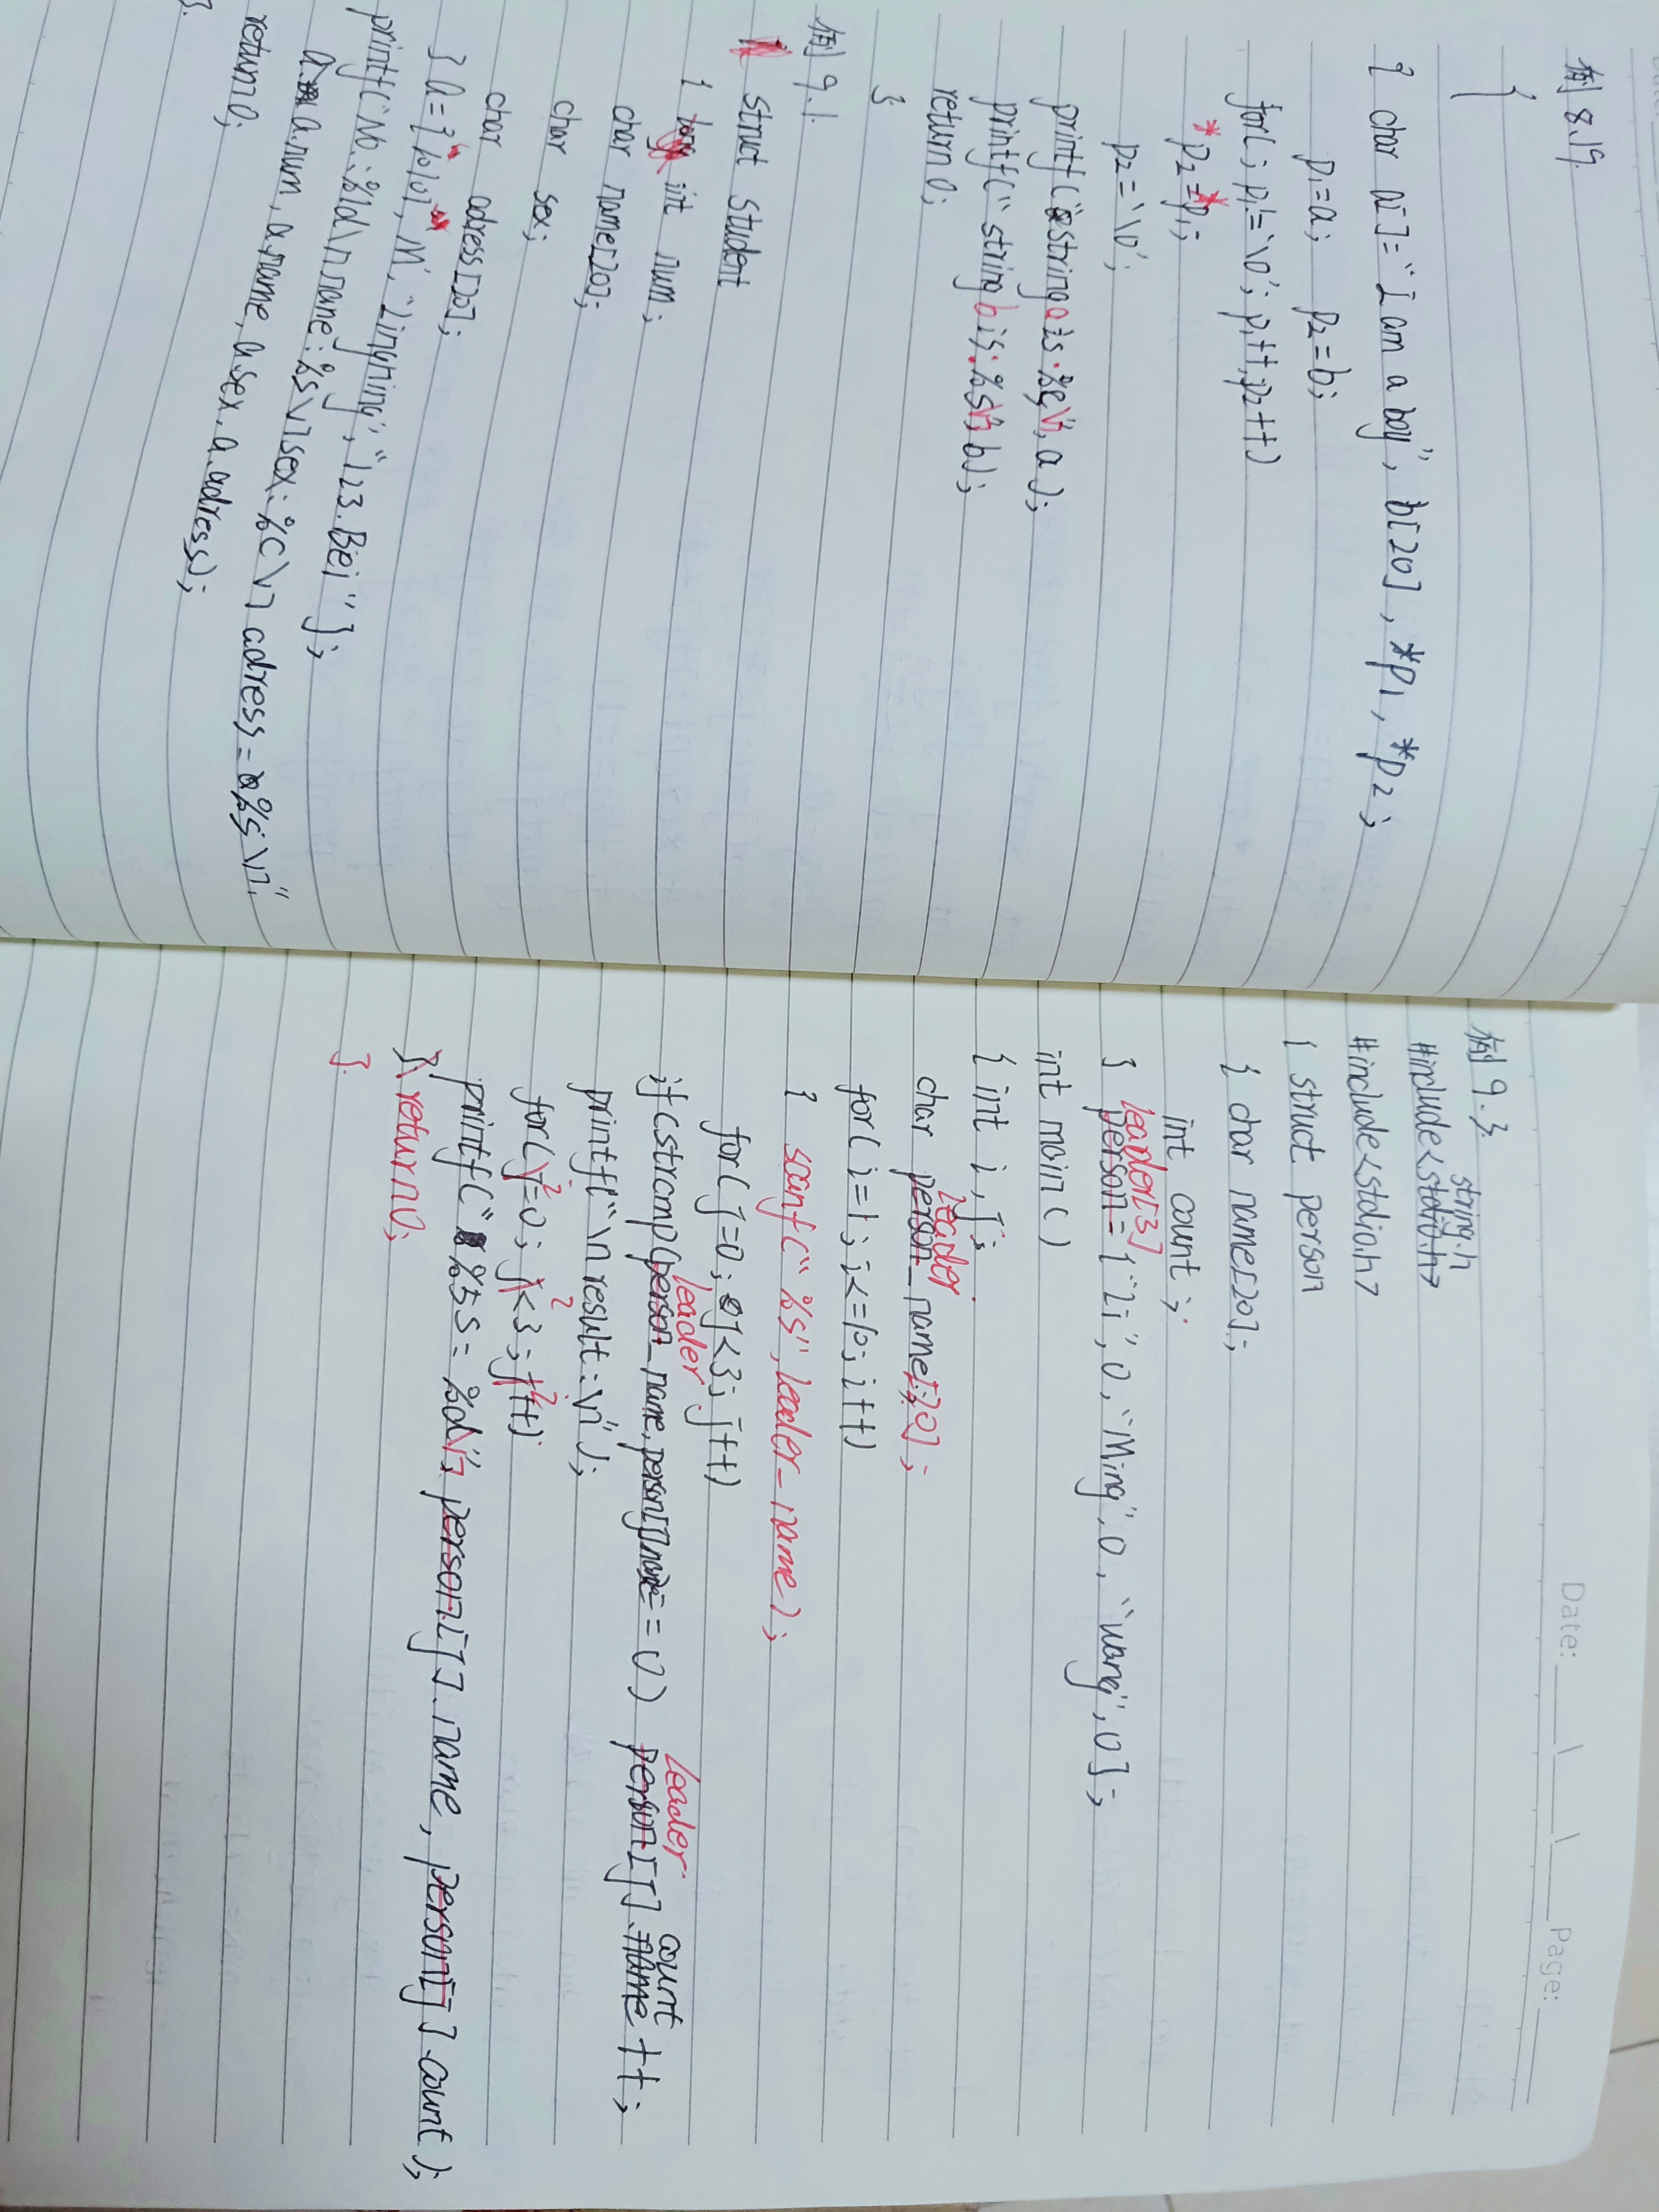 例 8.19.
{
{ char a[]="I am a boy", b[20], *p1, *p2;
p1=a; p2=b;
for(; p1!='\0'; p1++,p2++)
*p2=*p1;
p2='\0';
printf("string a is:%s\n", a);
printf("string b is:%s\n", b);
return 0;
}
例 9.1.
struct student
{ int num;
char name[20];
char sex;
char adress[20];
} a={10101, 'M', "Lingning", "123.Beij"};
printf("No.:%ld\n name:%s\nsex:%c\n adress=%s\n".
a.num, a.name, a.sex, a.adress);
return 0;
}.
Date: \ \ Page:
例 9.3.
string.h
#include<stdio.h>
#include<stdio.h>
{ struct person
{ char name[20];
int count;
leader[3]
} person={"Li",0,"Ming",0,"Wang",0};
int main()
{ int i,j;
leader
char person_name[20];
for(i=1; i<=10; i++)
{ scanf("%s", leader_name);
for(j=0; j<3; j++)
leader leader count
if(strcmp(person_name,person[j].name==0) person[j].name++;
printf("\n result:\n");
2 2 2
for(j=0; j<3; j++)
printf("%5s=%d\n", person[j].name, person[j].count);
} return 0;
}.